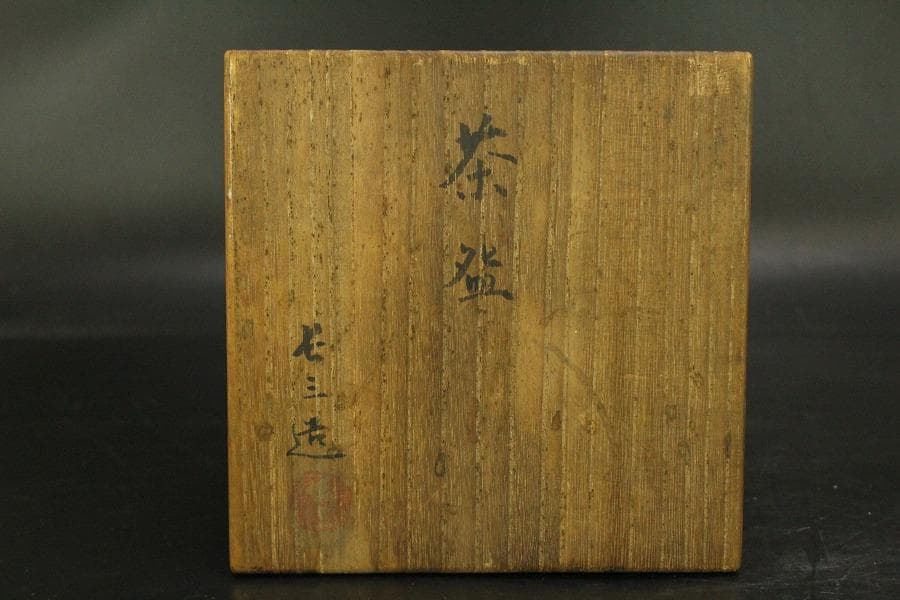 茶盌
長三造